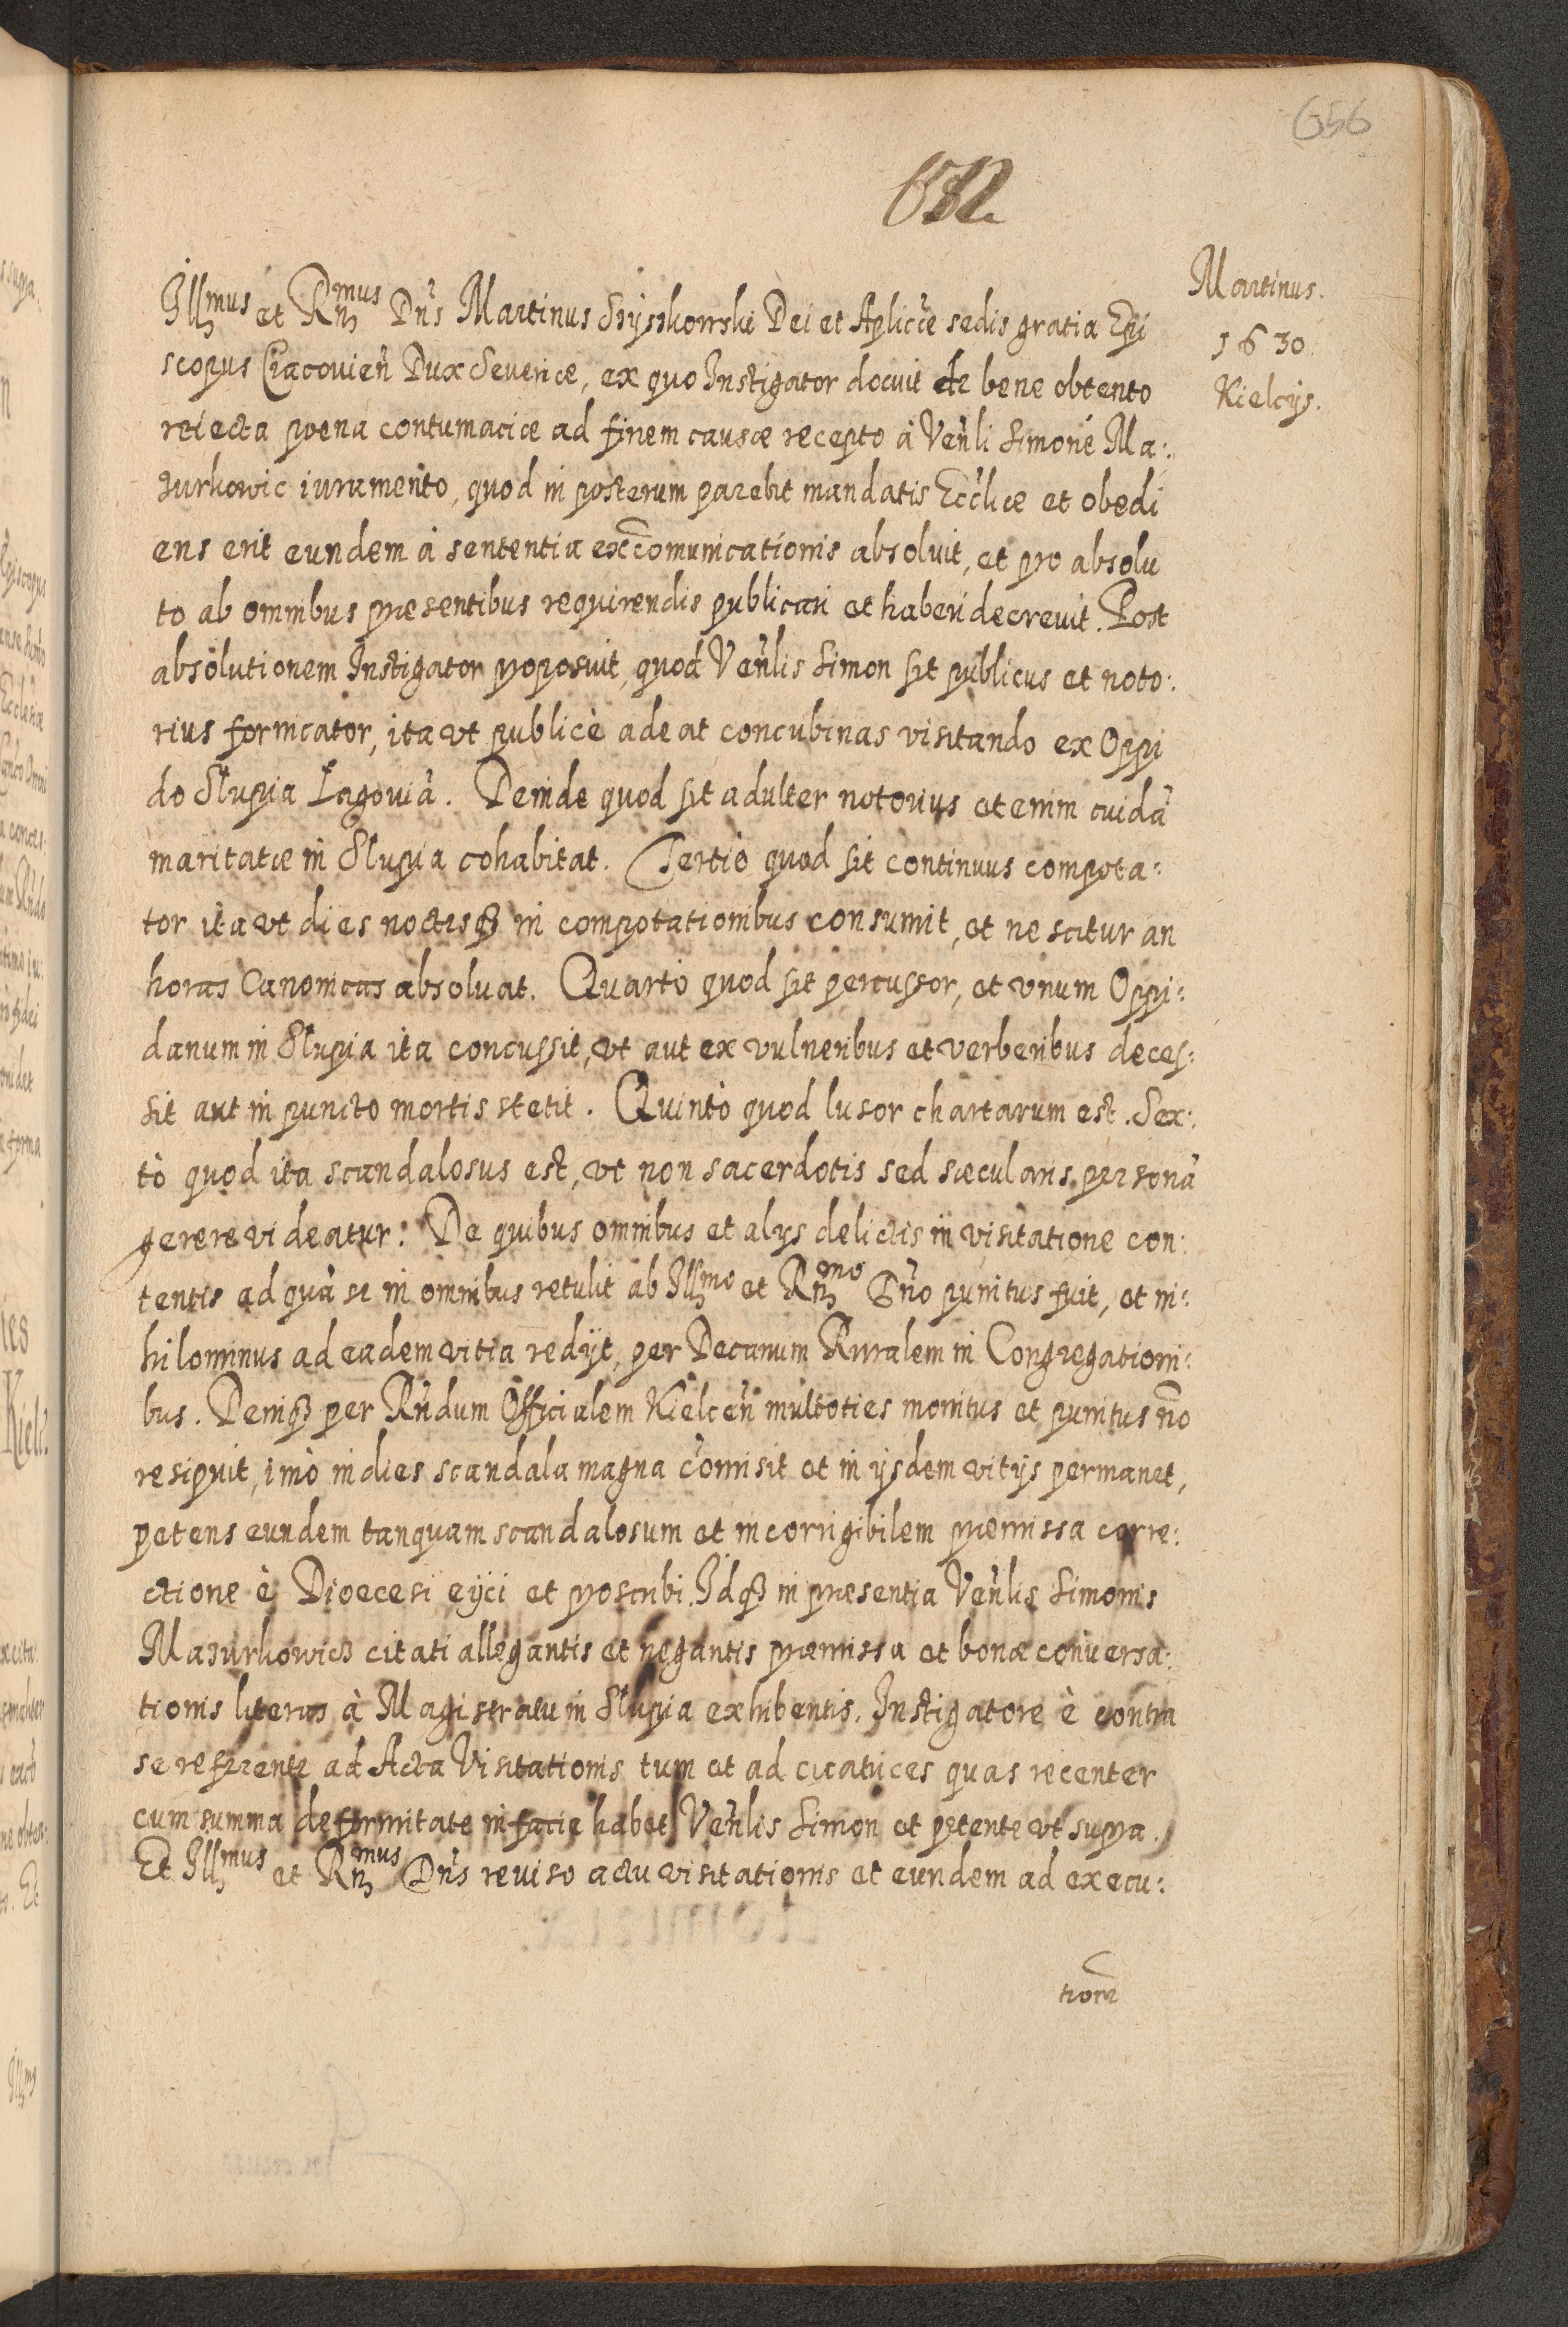 656
652
Martinus.
1630.
Kielcijs.
Illmus et Rmus Dn̄s Martinus Szyszkowski Dei et Aplicæ sedis gratia Epi
scopus Cracovien̄ Dux Severiæ, ex quo Instigator docuit de bene obtento
reiecta pœna contumaciæ ad finem causæ recepto à Ven̄li Simone Ma:
zurkowic iuramento, quod in posterum parebit mandatis Ecc̄liæ et obedi
ens erit eundem à sententia excomunicationis absoluit, et pro absolu
to ab omnibus præsentibus requirendis publicari et haberi decrevit. Post
absolutionem Instigator proposuit, quod Ven̄lis Simon sit publicus et noto:
rius fornicator, ita vt publicè adeat concubinas visitando ex Oppi
do Slupia Łagoviā. Deinde quod sit adulter notorius etenim cuidā
maritatæ in Slupia cohabitat. Tertiò quod sit continuus compota:
tor ita vt dies noctesq3 in compotationibus consumit, et nescitur an
horas Canonicas absoluat. Quartò quod sit percussor, et vnum Oppi:
danum in Slupia ita concussit, vt aut ex vulneribus et verberibus deces:
sit aut in puncto mortis stetit. Quintò quod lusor chartarum est. Sex:
tò quod ita scandalosus est, vt non sacerdotis sed sæcularis personā
gerere videatur: De quibus omnibus et alys delictis in visitatione con:
tentis ad quā se in omnibus retulit ab Illmo et Rmo Dn̄o punitus fuit, et ni:
hilominus ad eadem vitia redijt, per Decanum Ruralem in Congregationi:
bus. Deniq3 per Rn̄dum Officialem Kielcen̄ multoties monitus et punitus nō
resipuit, imò in dies scandala magna cōmisit et in ijsdem vitijs permanet,
petens eundem tanquam scandalosum et incorrigibilem præmissa corre:
ctione è Diœcesi eijci et proscribi. Idq3 in præsentia Ven̄lis Simonis
Mazurkowicz citati allegantis et negantis præmissa et bonæ conversa:
tionis literas à Magistratu in Slupia exhibentis. Instigatore è contra
se referente ad Acta Visitationis tum et ad cicatrices quas recenter
cum summa deformitate in facie habet Ven̄lis Simon et petente vt supra.
Et Illmus et Rmus Dn̄s reviso actu visitationis et eundem ad execu:
tionē